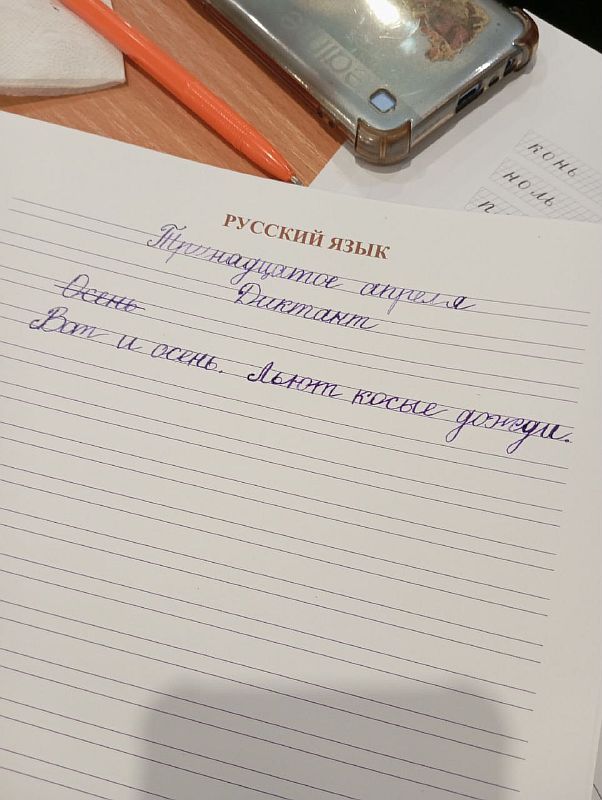 конь
ноль
п
РУССКИЙ ЯЗЫК
Тринадцатое апреля
Диктант
Осень
Вот и осень. Льют косые дожди.